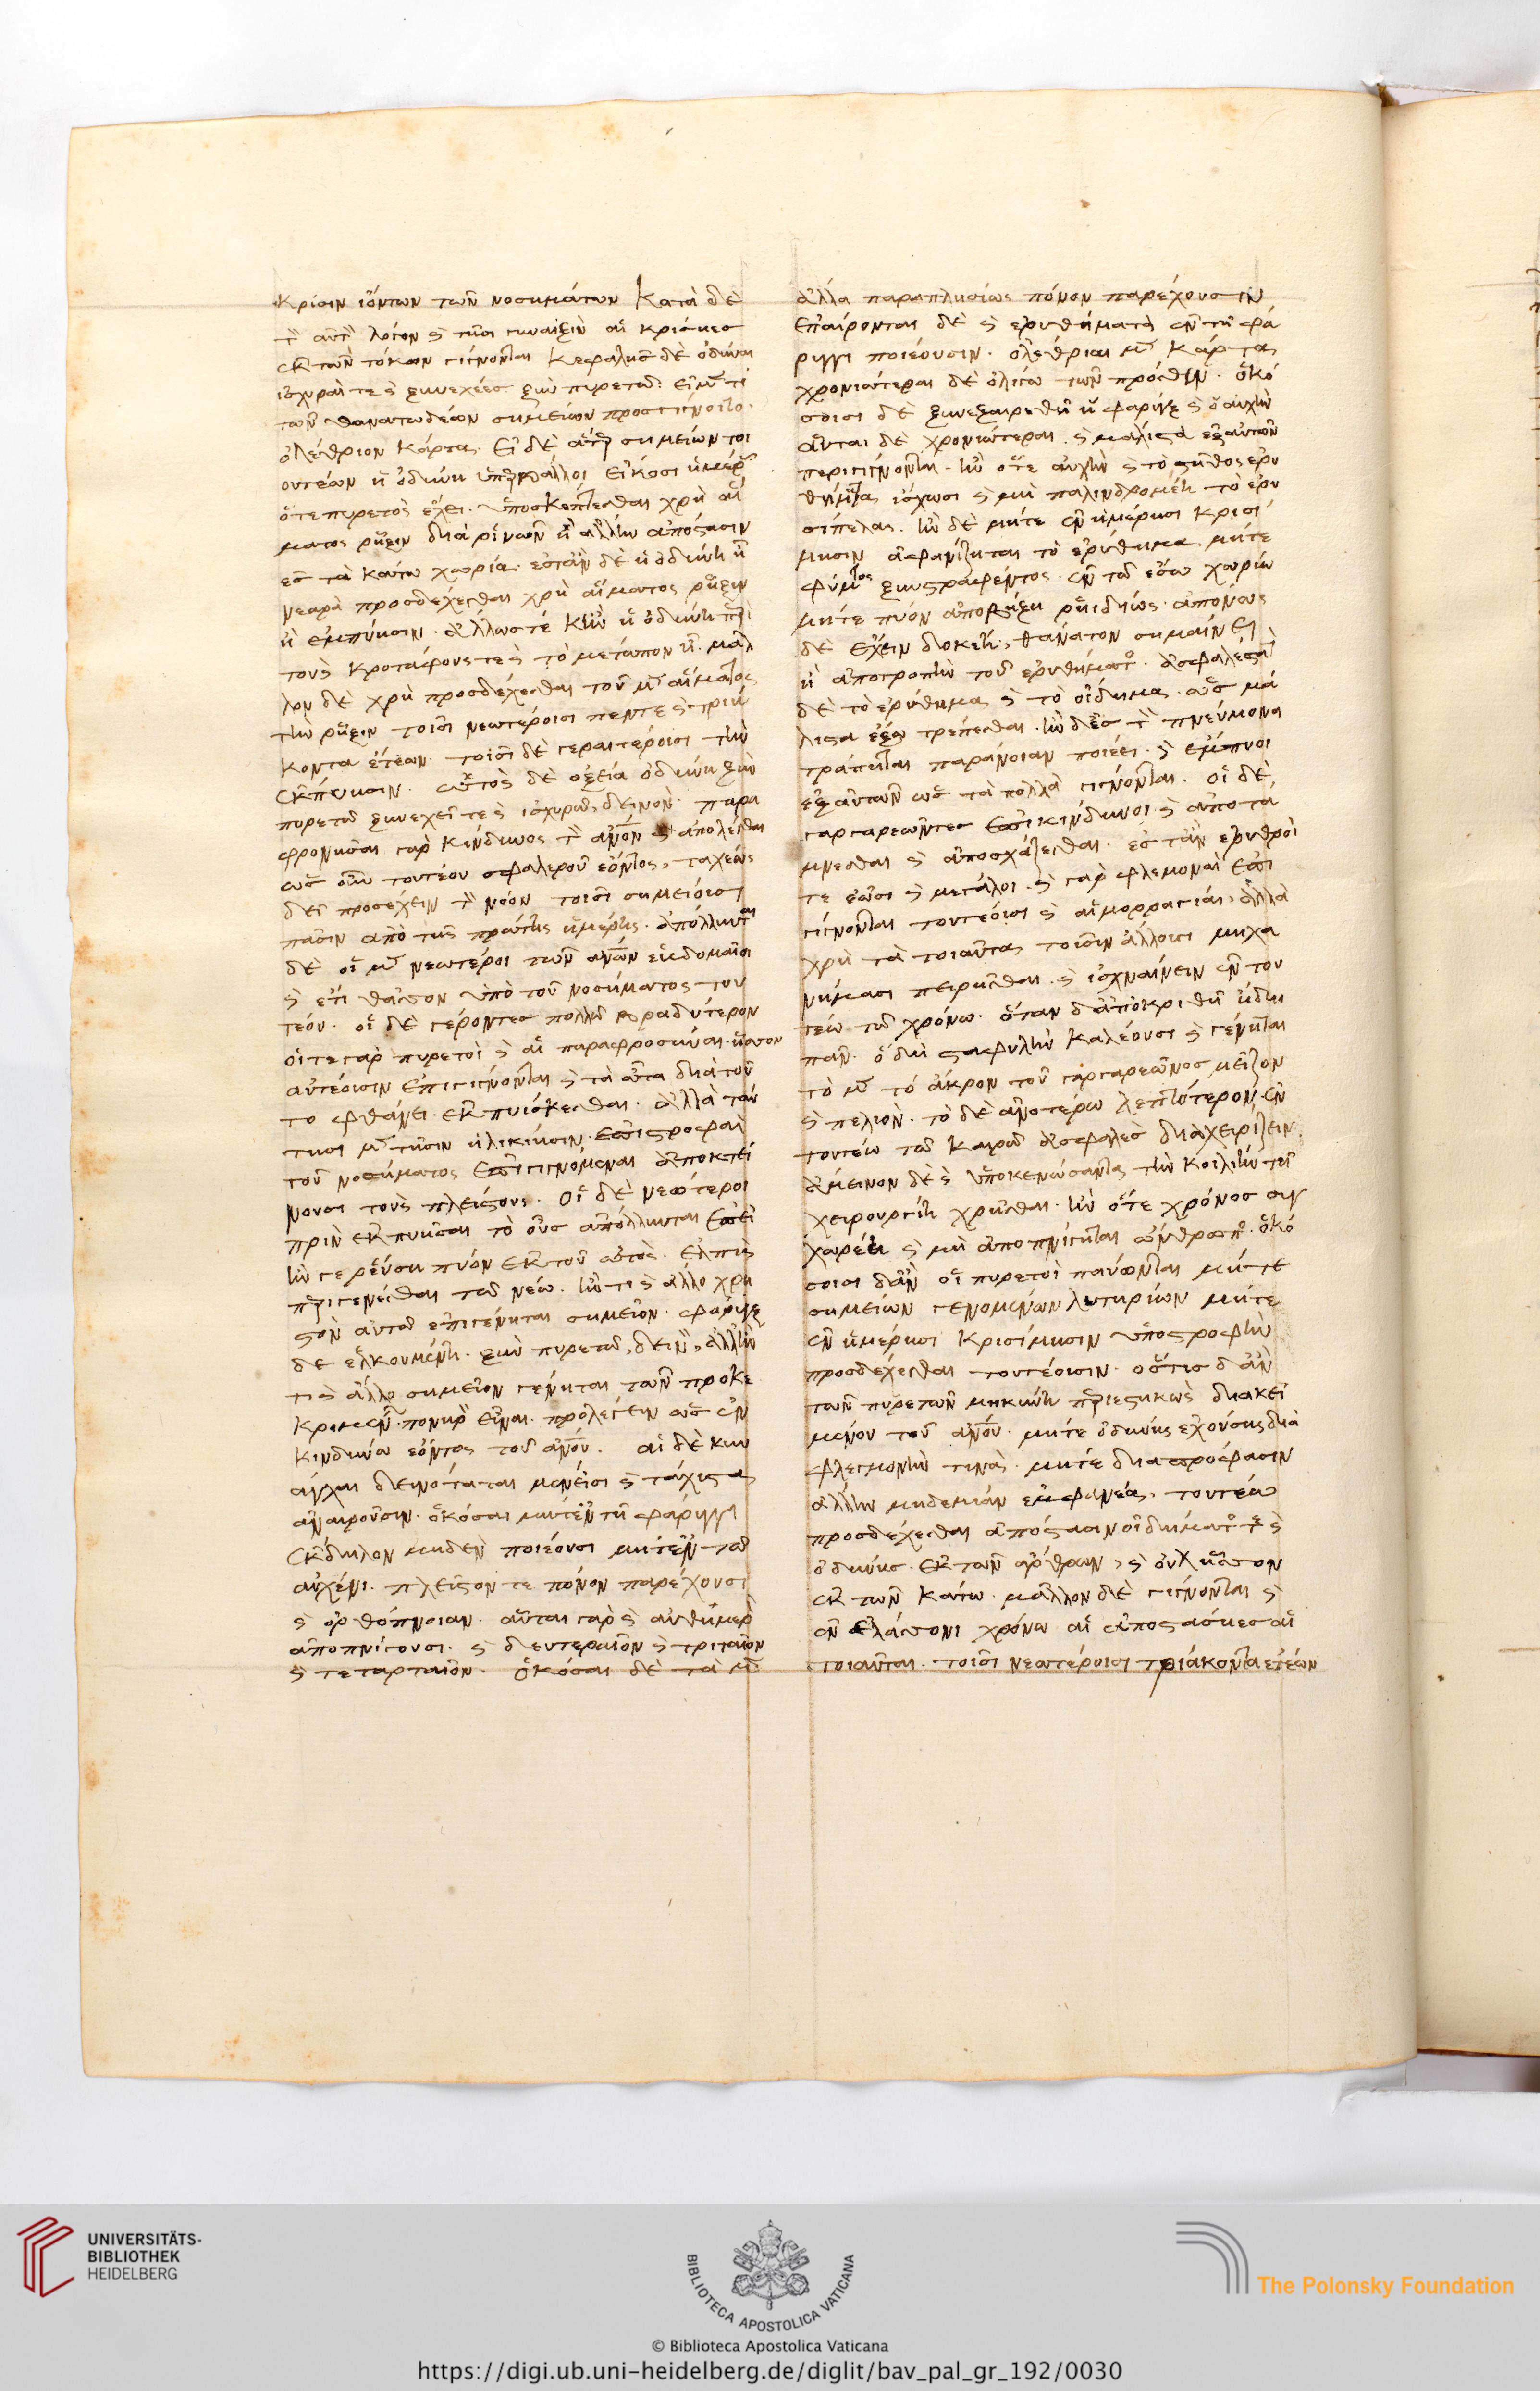 κρίσιν ἰόντων τῶν νοσημάτων κατὰ δὲ
τὸν αὐτὸν λόγον καὶ τῆσι γυναιξὶν αἱ κρίσηες
ἐκ τῶν τόκων γίγνονται κεφαλῆς δὲ ὀδύναι
ἰσχυραί τε καὶ ξυνεχέες ξὺν πυρετῶ: εἰ μέν τι
τῶν θανατωδέων σημείων προσγίγνοιτο.
ὀλέθριον κάρτα. εἰ δὲ ἄτερ σημείων τοι
ουτέων ἡ ὀδύνη ὑπερβάλλοι εἴκοσι ἡμέρας
ὅτε πυρετὸς ἔχει. ὑποσκέπτεσθαι χρὴ αἵ
ματος ῥῆξιν διὰ ῥινῶν ἢ ἄλλην ἀπόστασιν
ἐς τὰ κάτω χωρία. ἔστ' ἂν δὲ ἡ ὀδύνη ἦ
νεαρὰ προσδέχεσθαι χρὴ αἵματος ῥῆξιν
ἢ ἐμπύησιν. ἄλλως τε κἢν ἡ ὀδύνη περὶ
τοὺς κροτάφους τε καὶ τὸ μέτωπον ἦ. μᾶλ
λον δὲ χρὴ προσδέχεσθαι τοῦ μὲν αἵματος
τὴν ῥῆξιν τοῖσι νεωτέροισι πέντε καὶ τριή
κοντα ἐτέων. τοῖσι δὲ γεραιτέροισι τὴν
ἐκπύησιν. ὠτὸς δὲ ὀξεία ὀδύνη ξὺν
πυρετῶ ξυνεχεῖ τε καὶ ἰσχυρῶ, δεινὸν. παρα
φρονῆσαι γὰρ κίνδυνος τὸν ἄνον καὶ ἀπολέσθαι
ὡς οὖν τουτέου σφαλεροῦ ἐόντος, ταχέως
δεῖ προσέχειν τὸν νόον τοῖσι σημείοισι
πᾶσιν ἀπὸ τῆς πρώτης ἡμέρης. ἀπόλλυνται
δὲ οἱ μὲν νεωτέροι τῶν ἀνων ἑβδομαῖοι
καὶ ἔτι θᾶσσον ὑπὸ τοῦ νοσήματος του
τέου. οἱ δὲ γέροντες πολλῶ βραδύτερον
οἵ τε γὰρ πυρετοὶ καὶ αἱ παραφροσύναι ἧσσον
αὐτέοισιν ἐπιγίγνονται καὶ τὰ ὦτα διὰ τοῦ
το φθάνει ἐκπυΐσκεσθαι. ἀλλὰ ταύ
τησι μὲν τῆσιν ἡλικίησιν. ἐπιστροφαὶ
τοῦ νοσήματος ἐπιγιγνόμεναι ἀποκτεί
νουσι τοὺς πλείστους. οἱ δὲ νεώτεροι
πρὶν ἐκπυῆσαι τὸ οὖς ἀπόλλυνται ἐπεὶ
ἤν γε ῥεύση πύον ἐκ τοῦ ὠτὸς. ἐλπὶς
περιγενέσθαι τῶ νέω. ἤν τι καὶ ἄλλο χρη
στὸν αὐτῶ ἐπιγένηται σημεῖον. φάρυγξ
δὲ ἑλκουμένη. ξὺν πυρετῶ, δεινὸν, ἀλλ' ἤν
τι καὶ ἄλλο σημεῖον γένηται τῶν προκε
κριμένων πονηρὸν εἶναι. προλέγειν ὡς ἐν
κινδύνω ἐόντος τοῦ ἀνου. αἱ δὲ κυν
άγχαι δεινόταται μενέισι καὶ τάχιστα
ἀναιροῦσιν. ὁκόσαι μήτ' ἐν τῆ φάρυγγι
ἔκδηλον μηδὲν ποιέουσι μήτ' ἐν τῶ
αὐχένι. πλεῖστόν τε πόνον παρέχουσι
καὶ ὀρθόπνοιαν. αὗται γὰρ καὶ αὐθήμερὸν
ἀποπνίγουσι. καὶ δευτεραῖον καὶ τριταῖον
καὶ τεταρταῖον. ὁκόσαι δὲ τὰ μὲν
ἄλλα παραπλησίως πόνον παρέχουσιν
ἐπαίρονται δὲ καὶ ἐρυθήματα ἐν τῆ φά
ρυγγι ποιέουσιν. ὀλέθριαι μὲν κάρτα
χρονιώτεραι δὲ ὀλίγω τῶν πρόσθεν. ὁκό
σοισι δὲ ξυνεξαιρεθῆ ἡ φάρυγξ καὶ ὁ αὐχὴν
αὗται δὲ χρονιώτεραι. καὶ μάλιστα ἐξ αὐτῶν
περιγίγνονται. ἢν ὅτε αὐχὴν καὶ τὸ στῆθος ἐρυ
θήματα ἴσχωσι καὶ μὴ παλινδρομέη τὸ ἐρυ
σίπελας. ἢν δὲ μήτε ἐν ἡμέρησι κρισί
μησιν ἀφανίζηται τὸ ἐρύθημα μήτε
φύματος ξυστραφέντος. ἐν τῶ ἔσω χωρίω
μήτε πύον ἀποβήξη ῥηϊδίως. ἀπόνως
δὲ ἔχειν δοκέη, θάνατον σημαίνει
ἢ ἀποτροπὴν τοῦ ἐρυθήματος. ἀσφαλέστατον
δὲ τὸ ἐρύθημα καὶ τὸ οἴδημα. ὡς μά
λιστα ἔξω τρέπεσθαι. ἢν δ' ἐς τὸν πνεύμονα
τράπηται παράνοιαν ποιέει. καὶ ἔμπυοι
ἐξ αὐτῶν ὡς τὰ πολλὰ γίγνονται. οἱ δὲ
γαργαρεῶντες ἐπικίνδυνοι καὶ ἀποτά
μνεσθαι καὶ ἀποσχάζεσθαι. ἔστ' ἂν ἐρυθροί
τε ἔωσι καὶ μεγάλοι. καὶ γὰρ φλεμοναὶ ἐπι
γίγνονται τουτέοισι καὶ αἱμορραγίαι, ἀλλὰ
χρὴ τὰ τοιαῦτα τοῖσιν ἄλλοισι μηχα
νήμασι πειρῆσθαι. καὶ ἰσχναίνειν ἐν του
τέω τῶ χρόνω. ὅταν δ' ἀποκριθῆ ἤδη
πᾶν. ὃ δὴ σταφυλὴν καλέουσι καὶ γένηται
τὸ μὲν τὸ ἄκρον τοῦ γαργαρεῶνος μεῖζον
καὶ πελιὸν. τὸ δὲ ἀνωτέρω λεπτότερον. ἐν
τουτέω τῶ καιρῶ ἀσφαλὲς διαχειρίζειν.
ἄμεινον δὲ καὶ ὑποκενώσαντα τὴν κοιλίην τῆ
χειρουργίη χρῆσθαι. ἢν ὅτε χρόνος συγ
χωρέει καὶ μὴ ἀποπνίγηται ὤνθρωπος. ὁκό
σοισι δ' ἂν οἱ πυρετοὶ παύωνται μήτε
σημείων γενομένων λυτηρίων μήτε
ἐν ἡμέρησι κρισίμησιν ὑποστροφὴν
προσδέχεσθαι τουτέοισιν. ὅστις δ' ἂν
τῶν πυρετῶν μηκύνη περιεστηκὼς διακει
μένου τοῦ ἀνου. μήτε ὀδύνης ἐχούσης διὰ
φλεγμονὴν τινὰ. μήτε διαπρόφασιν
ἄλλην μηδεμίαν ἐμφανέα. τουτέω
προσδέχεσθαι ἀπόστασιν οἰδήματος τε καὶ
ὀδύνης. ἐκ τῶν ἄρθρων, καὶ οὐχ ἧσσον
ἐκ τῶν κάτω. μᾶλλον δὲ γίγνονται καὶ
ἐν ἐλάσσονι χρόνω αἱ ἀποστάσηες αἱ
τοιαῦται. τοῖσι νεωτέροισι τριάκοντα ἐτέων
UNIVERSITÄTS-
BIBLIOTHEK
HEIDELBERG
BIBLIOTECA APOSTOLICA VATICANA
The Polonsky Foundation
© Biblioteca Apostolica Vaticana
https://digi.ub.uni-heidelberg.de/diglit/bav_pal_gr_192/0030